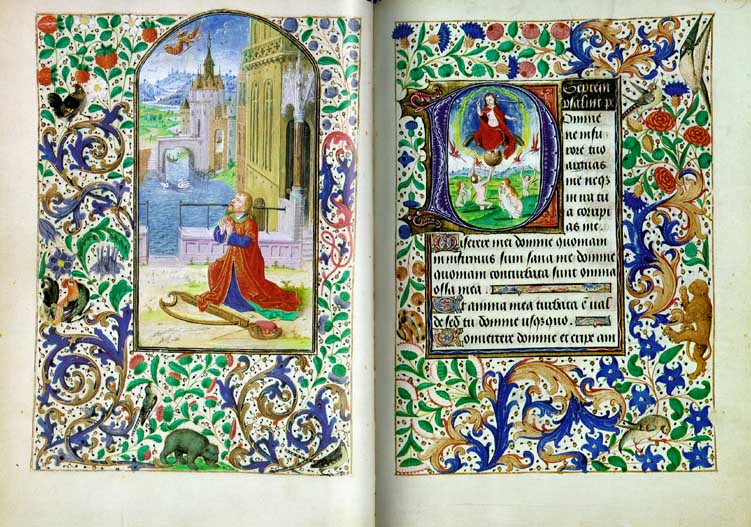 Septem
psalmi p
Domine
ne infu
rore tuo
arguas
me neq3
in ira tu
a corripi
as me.
Miserere mei domine quoniam
infirmus sum sana me domine
quoniam conturbata sunt omnia
ossa mea.
Et anima mea turbata est val
de sed tu domine usquequo.
Convertere domine et eripe am